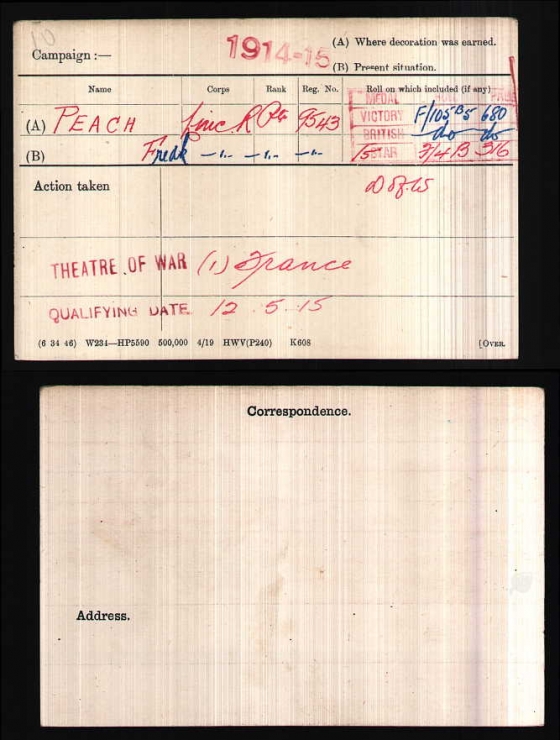 10
Campaign :— 1914-15 (A) Where decoration was earned.
(B) Present situation.
Name Corps Rank Reg. No. Roll on which included (if any)
MEDAL PAGE
(A) PEACH Linc R Pte 9543 VICTORY F/105 B5 680
(B) Fredk —"— —"— —"— BRITISH do do
15 STAR F/4 B 316
Action taken D of W
THEATRE OF WAR (1) France
QUALIFYING DATE 12.5.15
(6 34 46) W234—HP5590 500,000 4/19 HWV(P240) K608 [OVER.
Correspondence.
Address.